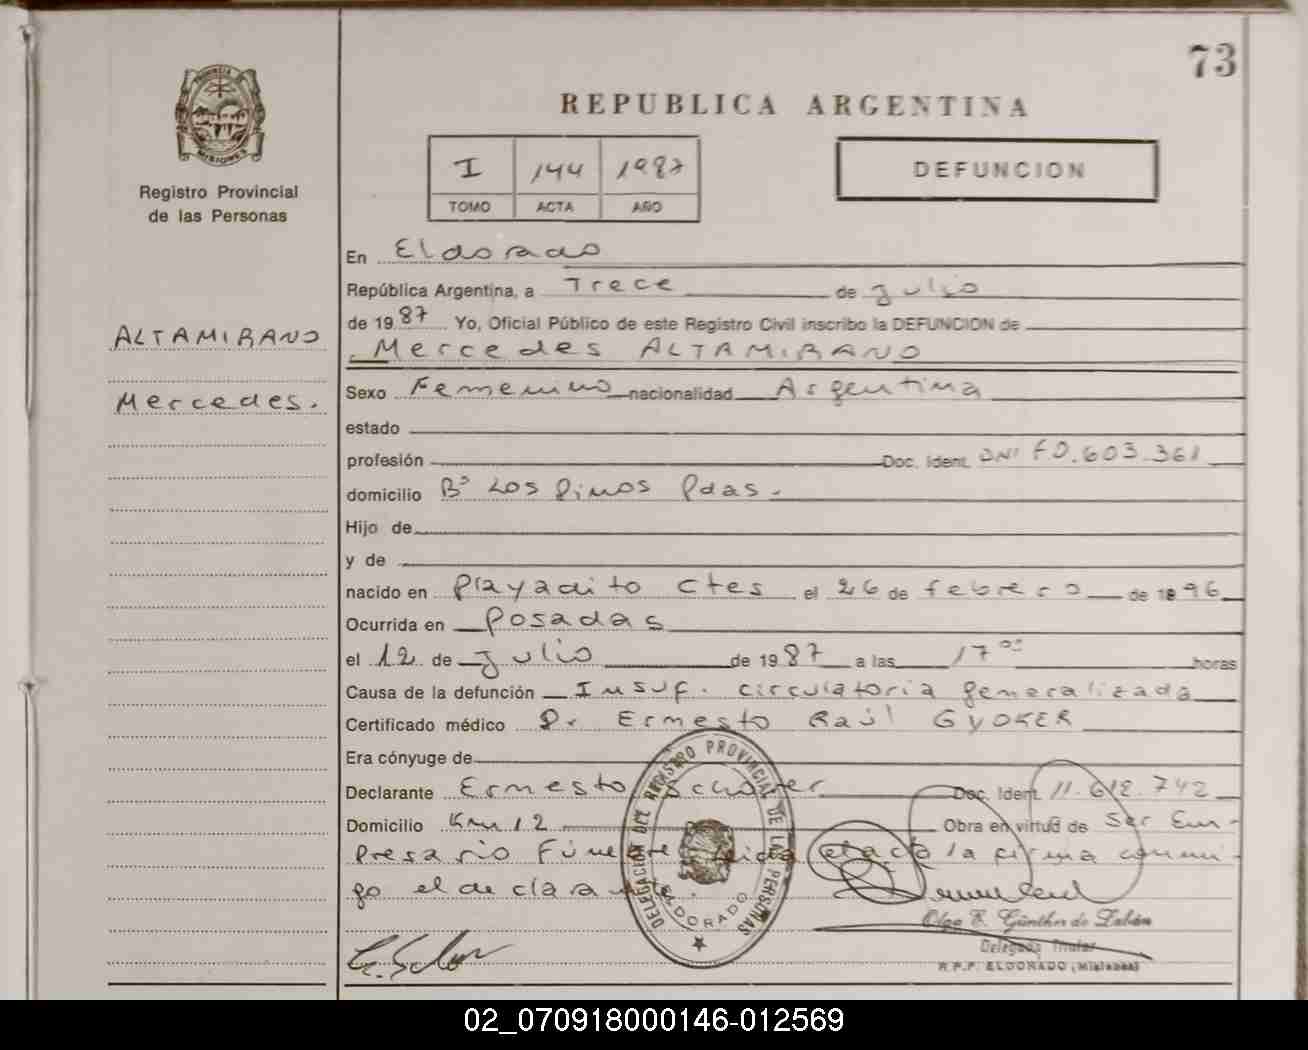 73
PROVINCIA DE
MISIONES
Registro Provincial
de las Personas
REPUBLICA ARGENTINA
I 144 1987
TOMO ACTA AÑO
DEFUNCION
ALTAMIRANO
Mercedes.
En Eldorado
República Argentina, a Trece de Julio
de 1987 Yo, Oficial Público de este Registro Civil inscribo la DEFUNCION de
Mercedes ALTAMIRANO
Sexo Femenino nacionalidad Argentina
estado
profesión Doc. Ident. DNI F0.603.361
domicilio B° Los Pinos Pdas.
Hijo de
y de
nacido en Playadito Ctes el 26 de febrero de 1896
Ocurrida en Posadas
el 12 de Julio de 1987 a las 17 horas
Causa de la defunción Insuf. circulatoria generalizada
Certificado médico Dr Ernesto Raúl GYOKER
Era cónyuge de
Declarante Ernesto Doc. Ident. 11.612.742
Domicilio Km 12 Obra en virtud de ser Em-
presario Fúnebre la firma conmi-
go el declarante.
DELEGACION DEL REGISTRO PROVINCIAL DE LAS PERSONAS
ELDORADO
Olga E. Günther de Labán
Delegada Titular
R.P.P. ELDORADO (Misiones)
02_070918000146-012569